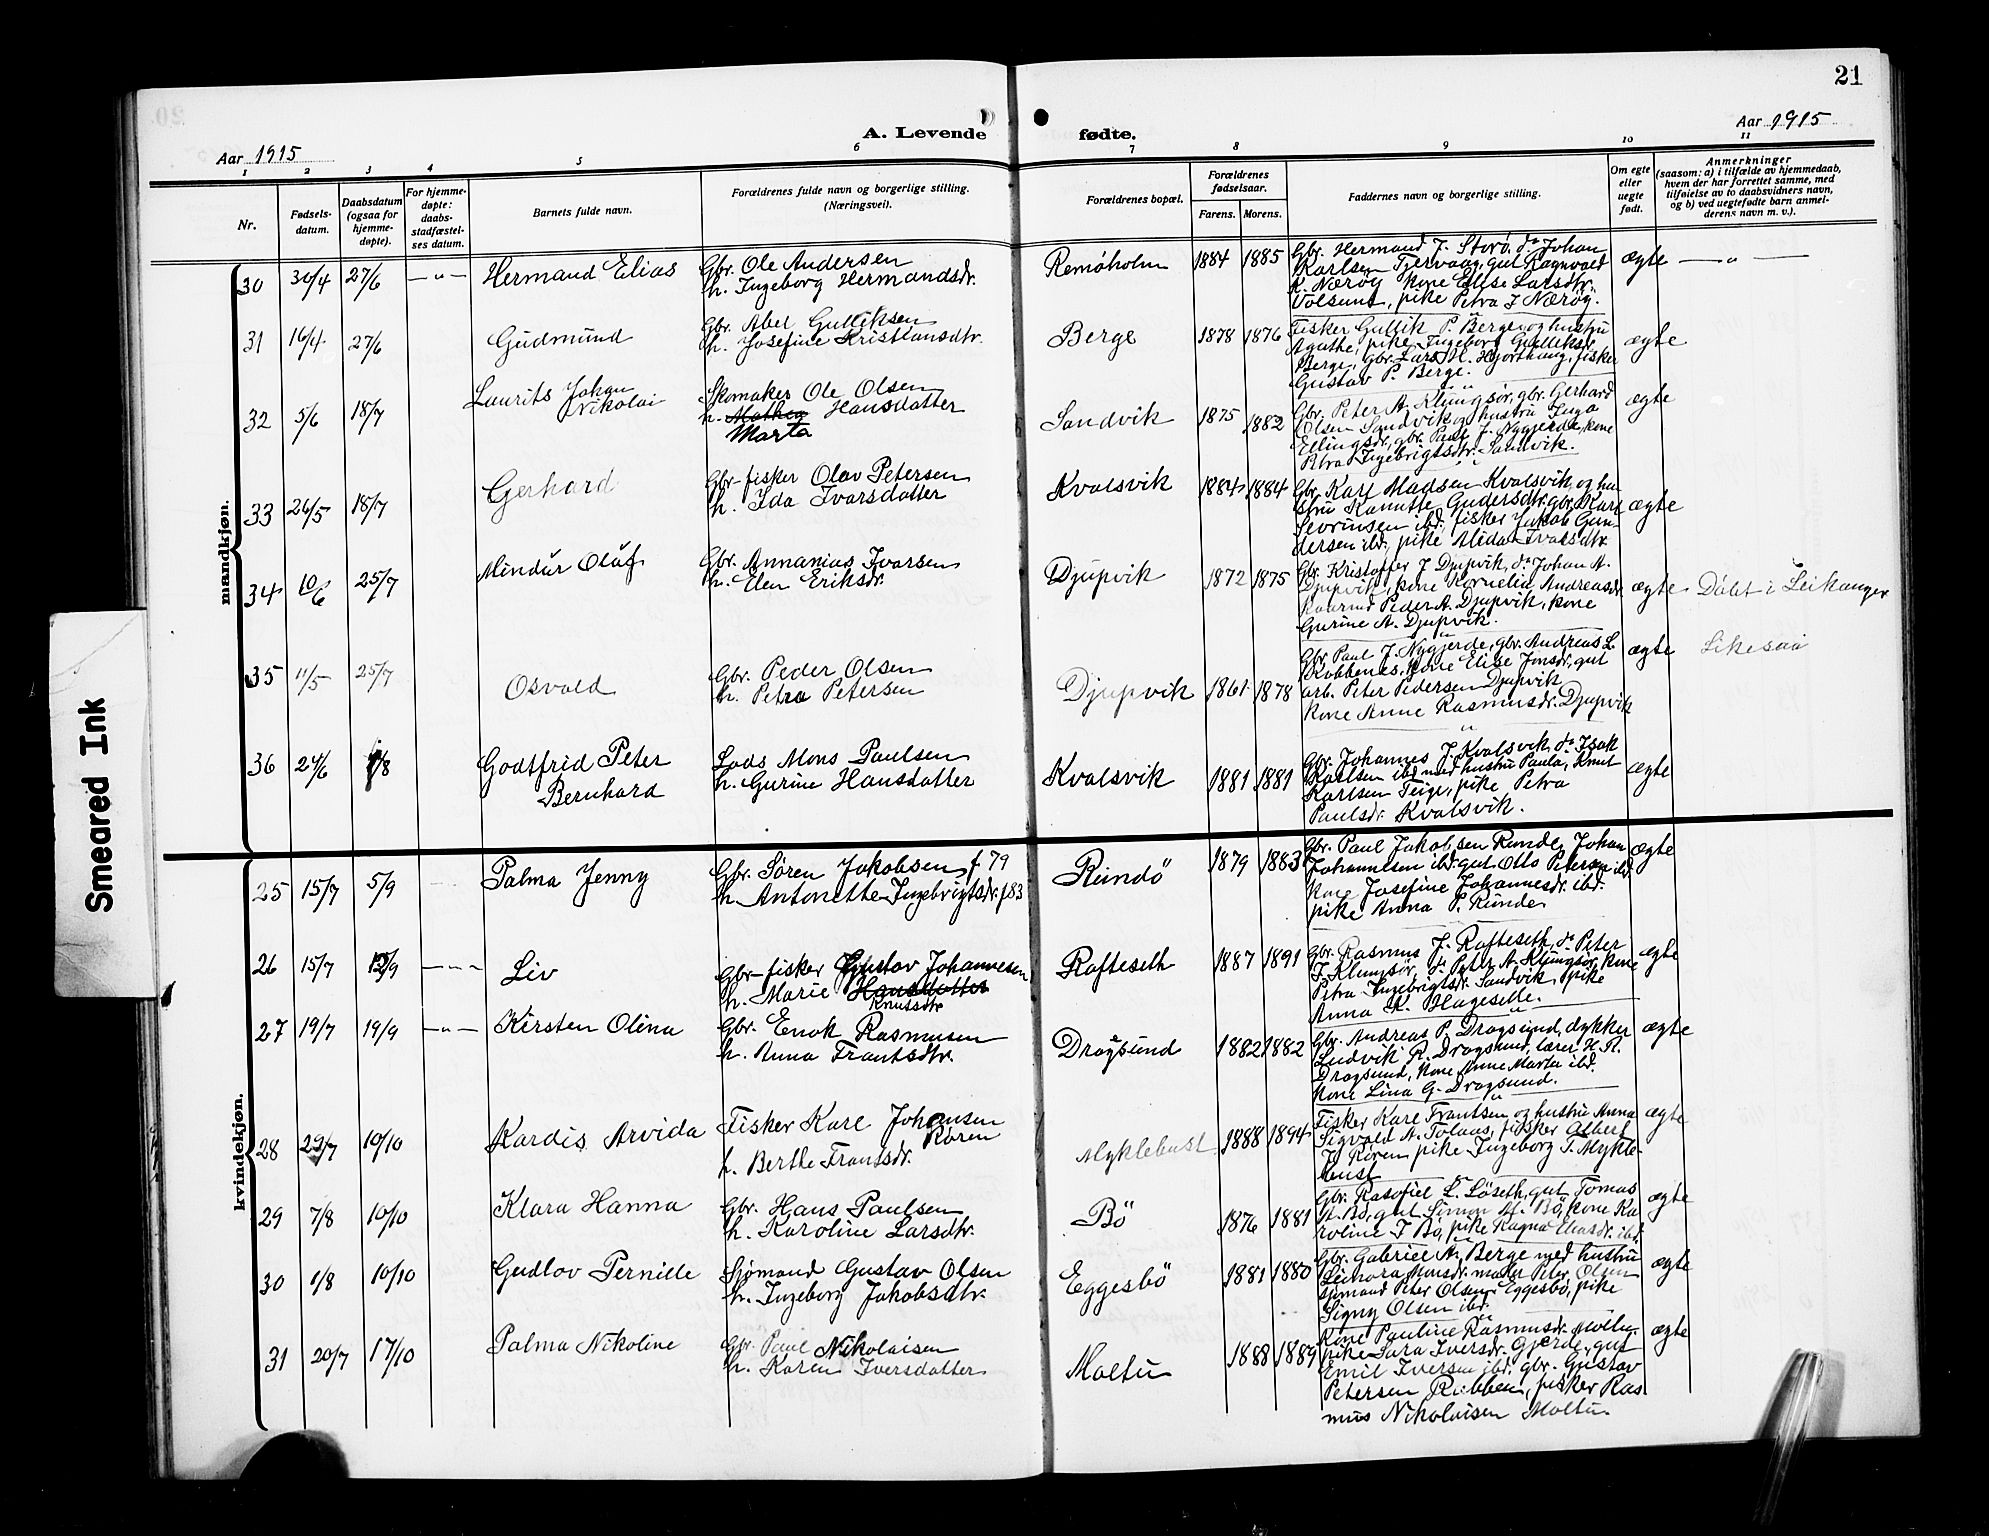 21
Aar 1915
A. Levende fødte.
Aar 1915
1 2 3 4 5 6 7 8 9 10 11
Nr.
Fødsels-
datum.
Daabsdatum
(ogsaa for
hjemme-
døpte).
For hjemme-
døpte:
daabs-
stadfæstel-
ses datum.
Barnets fulde navn.
Forældrenes fulde navn og borgerlige stilling.
(Næringsvei).
Forældrenes bopæl.
Forældrenes
fødselsaar.
Farens. Morens.
Faddernes navn og borgerlige stilling.
Om egte
eller
uegte
født.
Anmerkninger
(saasom: a) i tilfælde av hjemmedaab,
hvem der har forrettet samme, med
tilføielse av to daabsvidners navn,
og b) ved uegtefødte barn anmel-
derens navn m. v.).
mandkjøn.
30 30/4 27/6 —„— Hermand Elias
Gbr. Ole Andersen
h. Ingeborg Hermandsdr.
Remøholm 1884 1885
Gbr. Hermand J. Storø, do Johan
Karlsen Tjervaag, gut Ragnvald
K. Nærøy kone Elise Larsdtr.
Volsund, pike Petra J Nærøy.
ægte —„—
31 16/4 27/6 Gudmund
Gbr. Abel Gulliksen
h. Josefine Kristiansdtr.
Berge 1878 1876
Fisker Gullik P. Berge og hustru
Agathe, pike Ingeborg Gulliksdr.
Berge, gbr. Lars M. Hjorthaug, fisker
Gustav P. Berge.
ægte
32 5/6 18/7 Laurits Johan
Nikolai
Skomaker Ole Olsen
h. Mathea Hansdatter
Marta
Sandvik 1875 1882
Gbr. Peter A. Klungsør, gbr. Gerhard
Olsen Sandvik og hustru Inga
Ellingsdr., gbr. Paul J. Nygjerde, kone
Petra Ingebrigtsdtr. Sandvik.
ægte
33 26/5 18/7 Gerhard
Gbr-fisker Olav Petersen
h. Ida Ivarsdatter
Kvalsvik 1884 1884
Gbr. Karl Madsen Kvalsvik og hu-
stru Kanutte Gudersdtr. gbr. Karl
Sevrinsen ibd., fisker Jakob Gun-
dersen ibd., pike Alida Ivarsdtr.
ægte
34 10/6 25/7 Mindur Olaf
Gbr. Annanias Ivarsen
h. Elen Eriksdr.
Djupvik 1872 1875
Gbr. Kristoffer J Djupvik, do Johan A.
Djupvik, kone Kornelia Andreasdr.
Kaarud Peder A. Djupvik, kone
Gurine A. Djupvik.
ægte Døbt i Leikanger
35 11/5 25/7 Osvald
Gbr. Peder Olsen
h. Petra Petersen
Djupvik 1861 1878
Gbr. Paul J. Nygjerde, gbr. Andreas L.
Kobbenes, kone Elise Jonsdr., gut
arb. Peter Pedersen Djupvik
kone Anne Rasmusdr. Djupvik
ægte Likesaa
36 24/6 1/8 Godtfrid Peter
Bernhard
Lods Mons Paulsen
h. Gurine Hansdatter
Kvalsvik 1881 1881
Gbr. Johannes J. Kvalsvik, do Isak
Karlsen ibd med hustru Paula, Knut
Karlsen Teige, pike Petra
Paulsdr. Kvalsvik.
ægte
kvindekjøn.
25 15/7 5/9 Palma Jenny
Gbr. Søren Jakobsen f 79
h. Antonette Ingebrigtsdr. f 83
Rundö 1879 1883
Gbr. Paul Jakobsen Runde, Johan
Johannesen ibd. gut Otto Petersen ibd.
kone Josefine Johannesdr. ibd.
pike Anna P. Runde
ægte
26 15/7 12/9 —„— Liv
Gbr-fisker Gustav Johannesen
h. Marie Hansdatter
Knutsdtr
Rafteseth 1887 1891
Gbr. Rasmus J. Rafteseth, do Peter
J. Klungsør, do Peter A. Klungsør, kone
Petra Ingebrigtsdr. Sandvik, pike
Anna K. Hageselle.
ægte
27 19/7 19/9 —„— Kirsten Olina
Gbr. Enok Rasmusen
h. Anna Frantsdtr.
Dragsund 1882 1882
Gbr. Andreas P. Dragsund, dykker
Ludvik R. Dragsund, lærer H. R.
Dragsund, kone Anne Marta ibd.
kone Lina G. Dragsund.
ægte
28 29/7 10/10 Kardis Arvida
Fisker Karl Johansen
Røren
h. Berthe Frantsdr.
Myklebust 1888 1894
Fisker Karl Frantsen og hustru Anna
Sigvald A. Tolaas, fisker Albert
J. Røren pike Ingeborg T. Mykle-
bust
ægte
29 7/8 10/10 Klara Hanna
Gbr. Hans Paulsen
h. Karoline Larsdtr.
Bö 1876 1881
Gbr. Rasofiel L. Löseth, gut Tomas
H. Bö, gut Simon H. Bö, kone Ka-
roline J Bö, pike Ragna Eliasdr. ibd.
ægte
30 1/8 10/10 Gudlov Pernille
Sjømand Gustav Olsen
h. Ingeborg Jakobsdtr.
Eggesbö 1881 1880
Gbr. Gabriel A. Berge med hustru
Leonora Monsdr. maler Peter Olsen
sjømand Peter Olsen Eggesbö, pike
Signy Olsen ibd.
ægte
31 20/7 17/10 Palma Nikoline
Gbr. Paul Nikolaisen
h. Karen Iversdatter
Moltu 1888 1889
Kone Pauline Rasmusdr. Moltu.
pike Sara Iversdr. Gjerde, gut
Emil Iversen ibd. gbr. Gustav
Petersen Ribben, fisker Ras
mus Nikolaisen Moltu.
ægte
Smeared Ink